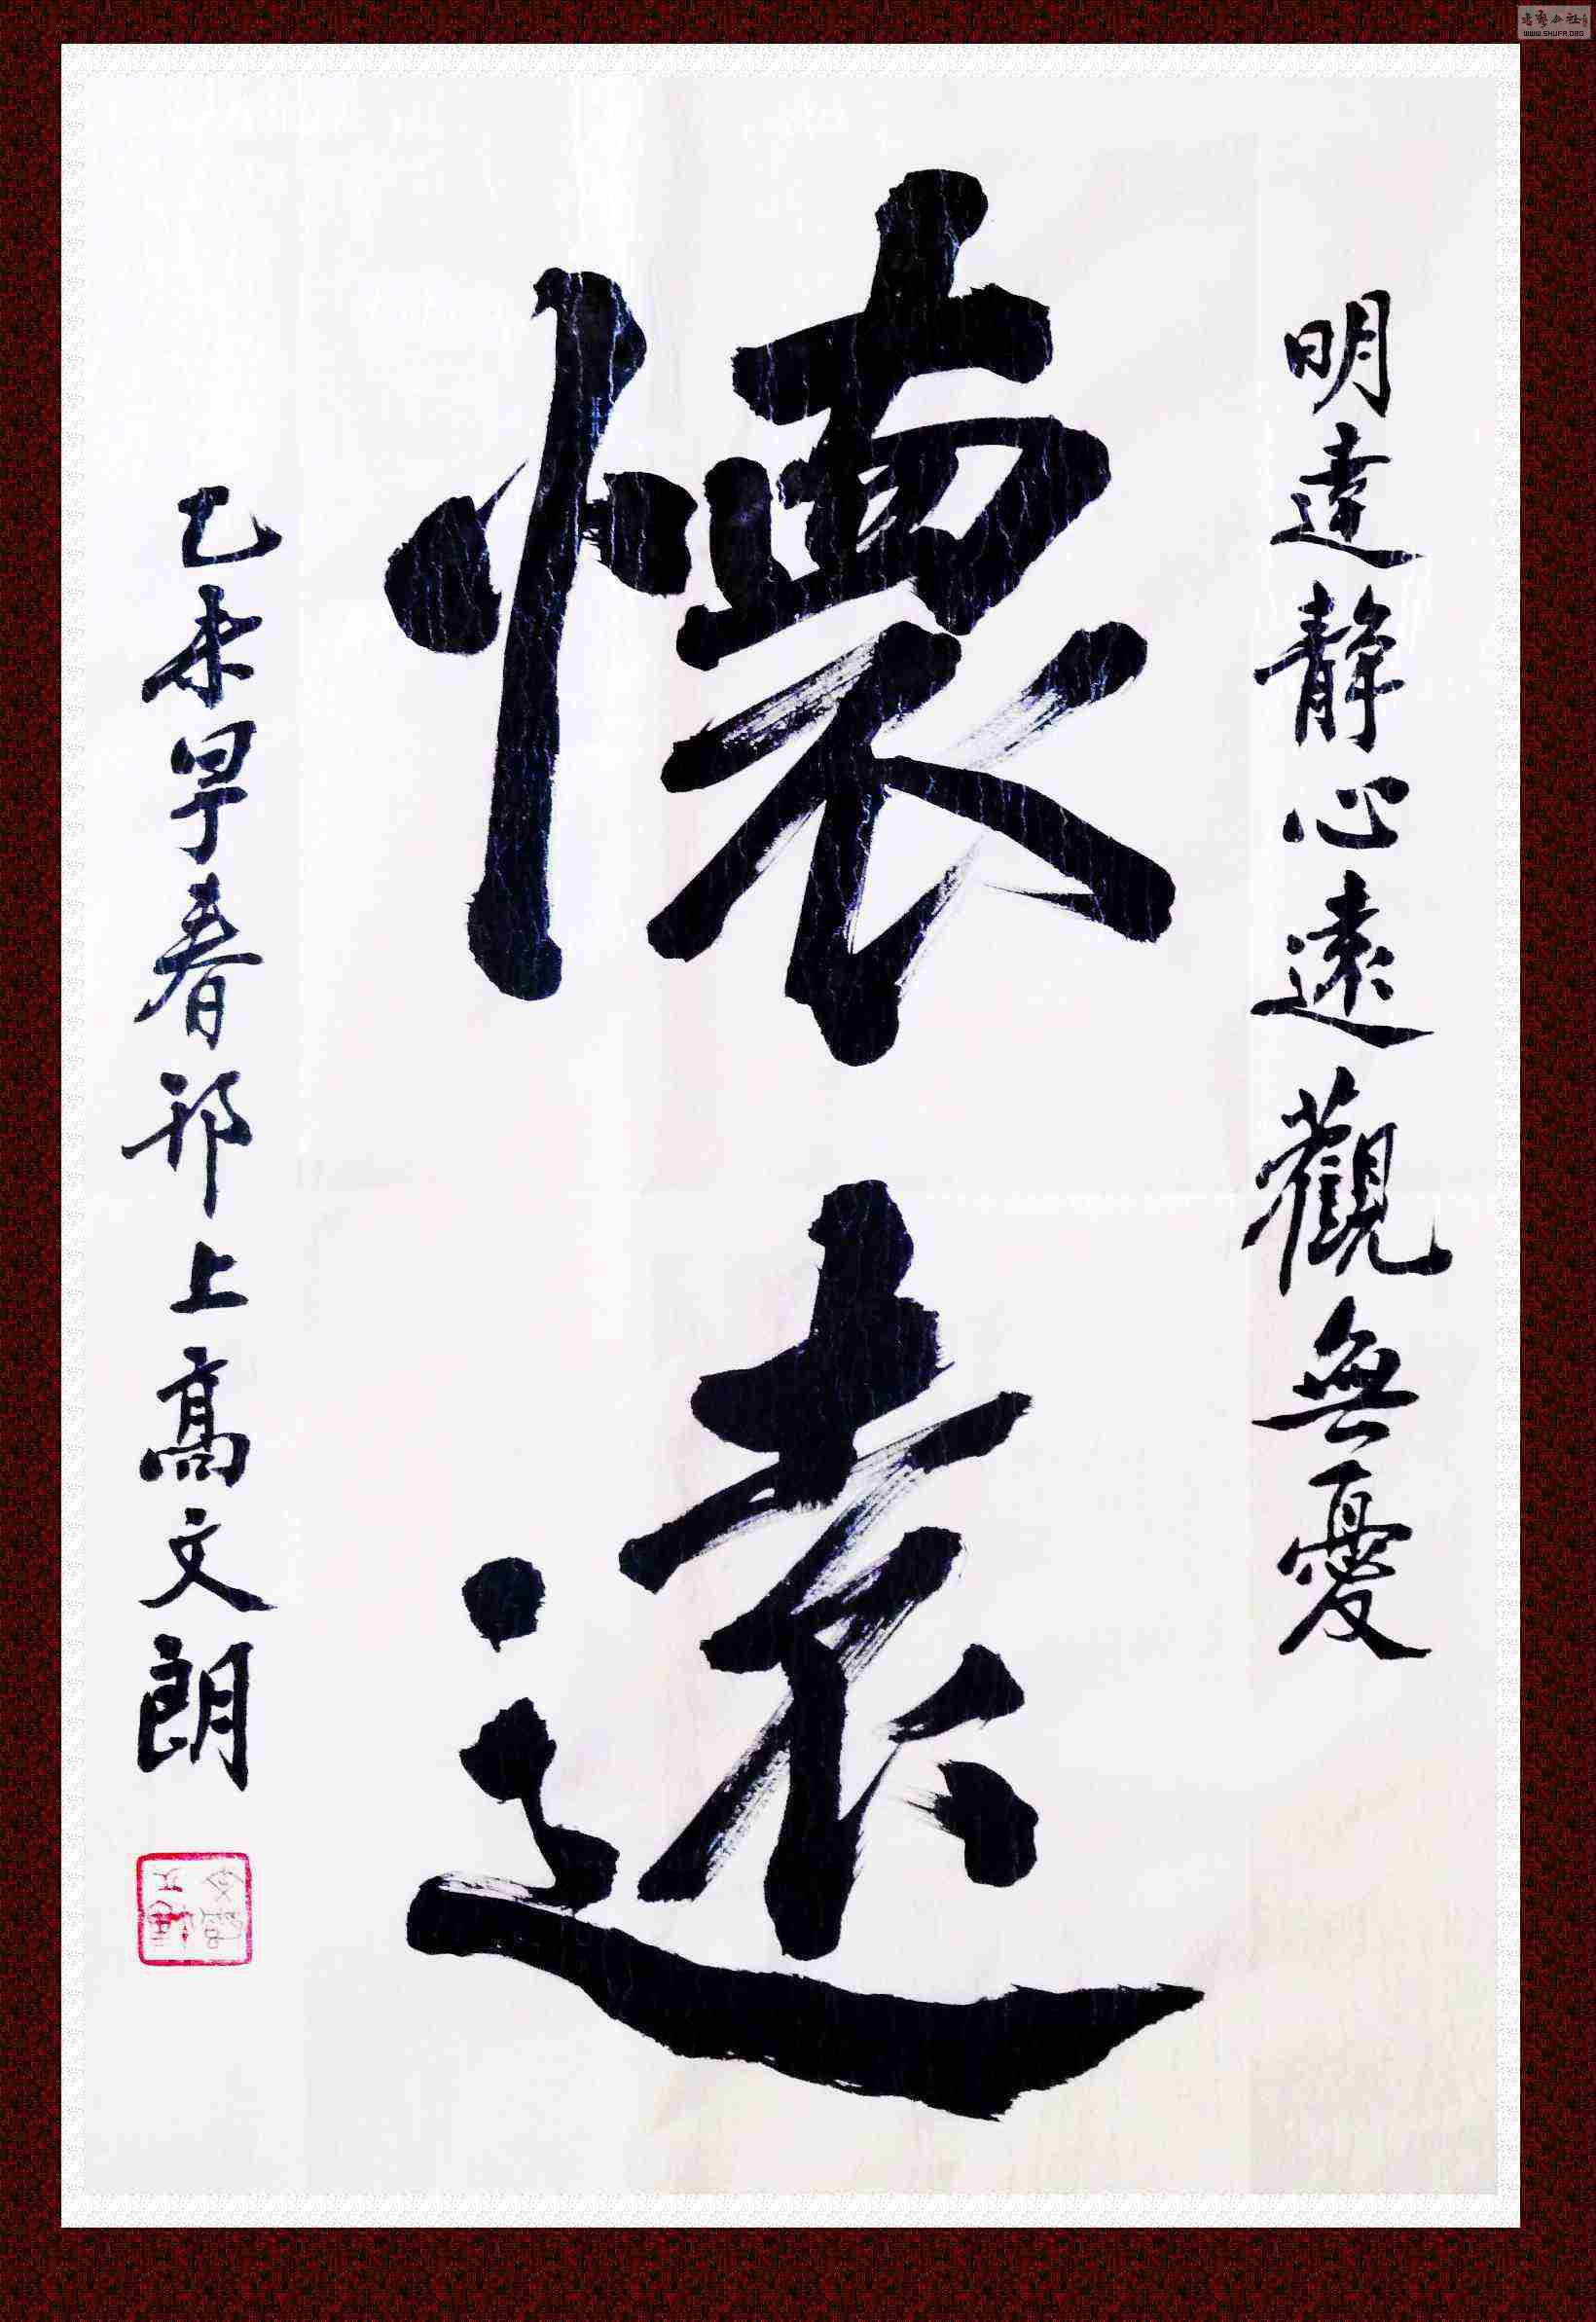 明達静心遠觀無憂
懷遠
乙未早春邗上高文朗
书法公社
WWW.SHUFA.ORG